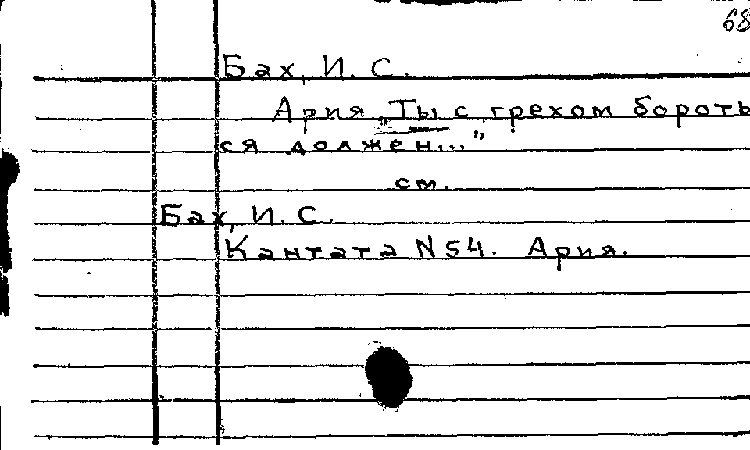 68
Бах, И. С.
Ария „Ты с грехом бороть
ся должен..."
см.
Бах, И. С.
Кантата N 54. Ария.